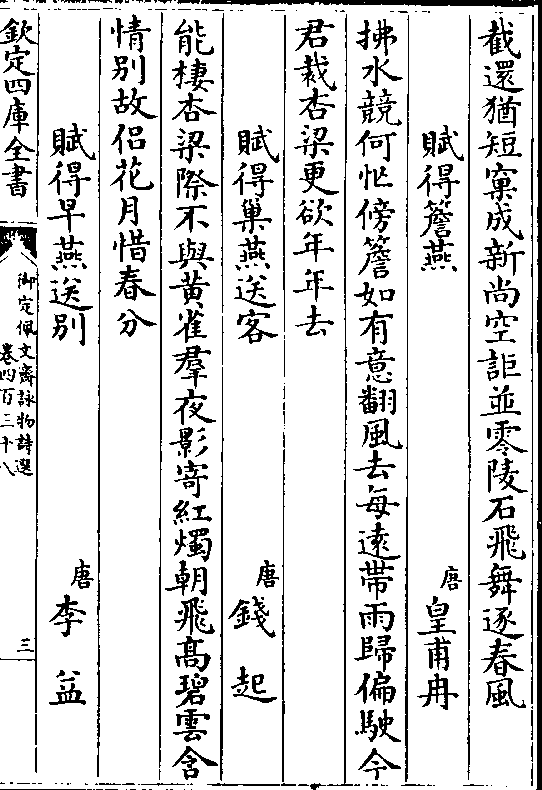 截還猶短窠成新尚空詎並零陵石飛舞逐春風
賦得簷燕 唐 皇甫冉
拂水競何忙傍簷如有意翻風去每遠帶雨歸偏駛今
君裁杏梁更欲年年去
賦得巢燕送客 唐 錢起
能棲杏梁際不與黄雀羣夜影寄紅燭朝飛髙碧雲含
情别故侣花月惜春分
賦得早燕送别 唐 李益
欽定四庫全書
御定佩文齋詠物詩選
卷四百三十八
三